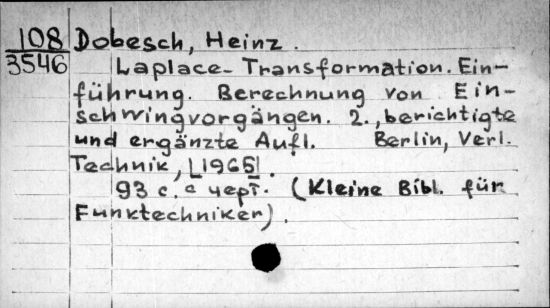 108
3546
Dobesch, Heinz.
Laplace-Transformation. Ein-
führung. Berechnung von Ein-
schwingvorgängen. 2., berichtigte
und ergänzte Aufl. Berlin, Verl.
Technik, [1965].
93 с. с черт. (Kleine Bibl. für
Funktechniker).